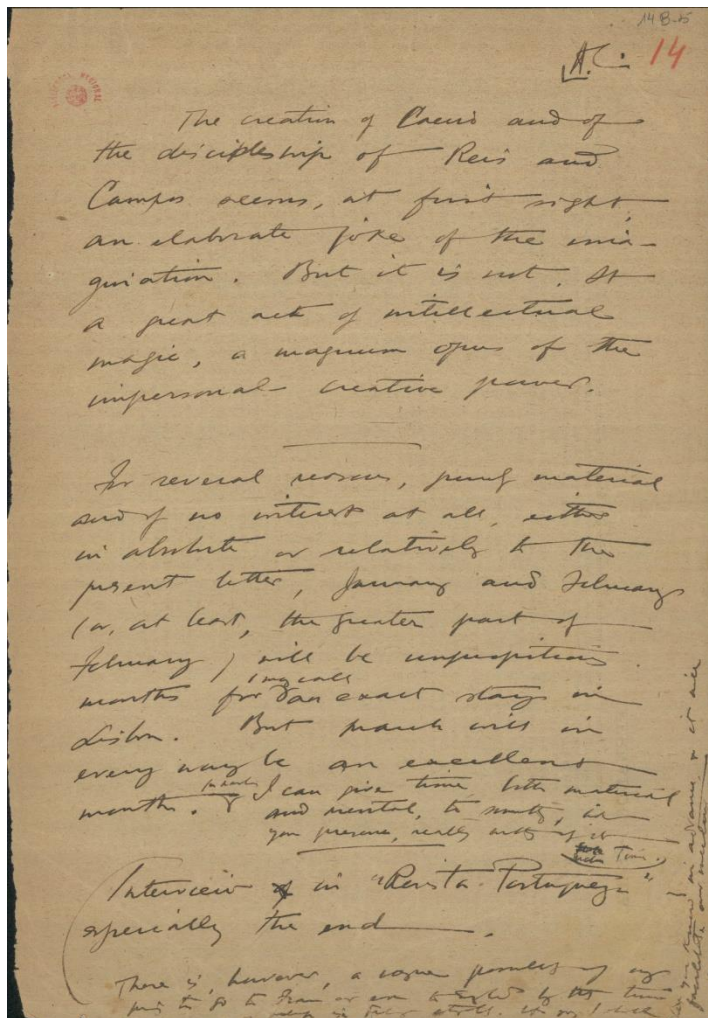 14B-5
A.C. 14
The creation of Caeiro and of
the discipleship of Reis and
Campos seems, at first sight,
an elaborate joke of the ima-
gination. But it is not. It
a great act of intellectual
magic, a magnum opus of the
impersonal creative power.
For several reasons, purely material
and of no interest at all, either
in absolute or relatively to the
present letter, January and February
(or, at least, the greater part of
February) will be unpropitious
months for an exact stay in
Lisbon. But March will in
every way be an excellent
month. I can give time, both material
and mental, to
you presence, really
Time.
Interview in "Revista Portugueza"
especially the end
There is, however, a vague of my
to go to or even to by that time
in advance & it will
facilitate